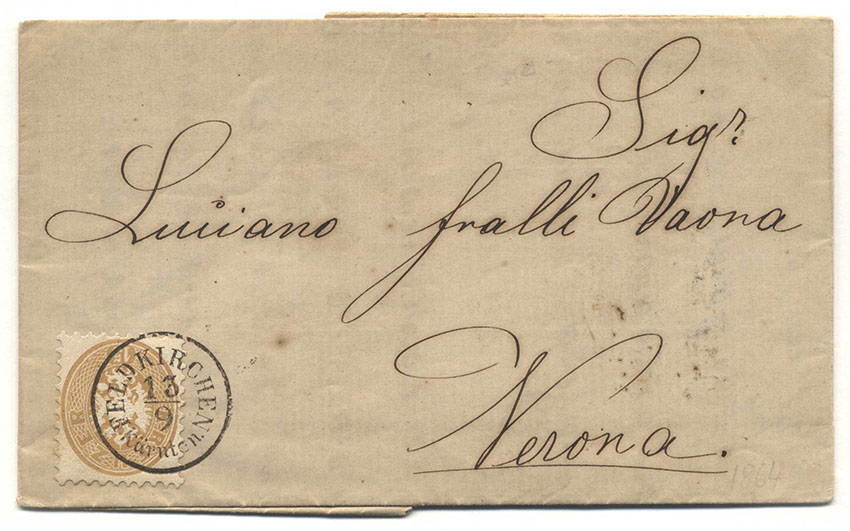 Sigr.
Luciano fralli Vaona
Verona.
FELDKIRCHEN
13
9
Kärnten
1864